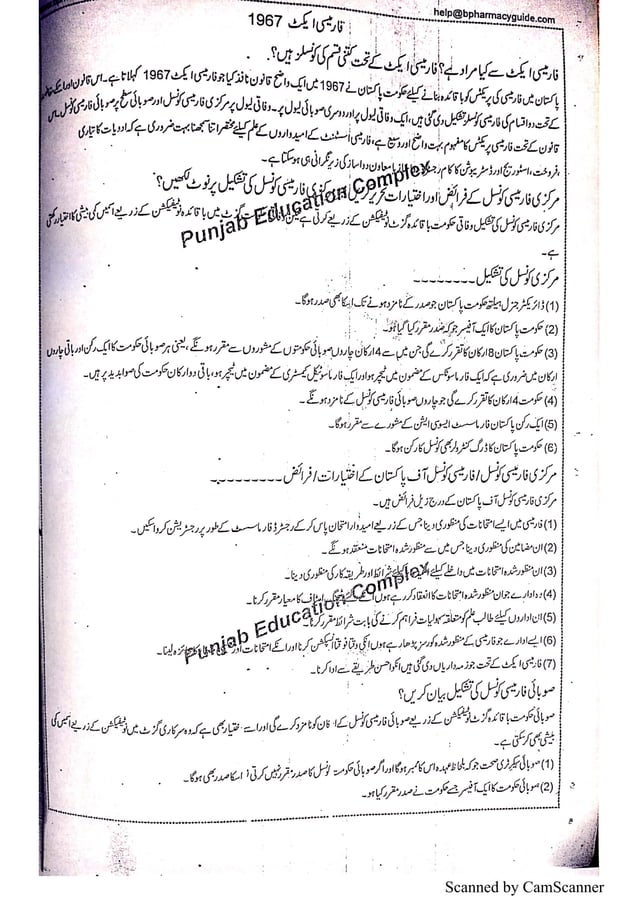 help@bpharmacyguide.com
فارمیسی ایکٹ 1967
فارمیسی ایکٹ سے کیا مراد ہے؟ فارمیسی ایکٹ کے تحت کتنی قسم کی کونسلز ہیں؟
پاکستان میں فارمیسی کی پریکٹس کو باقاعدہ بنانے کیلئے حکومت پاکستان نے 1967 میں ایک واضح قانون نافذ کیا جو فارمیسی ایکٹ 1967 کہلاتا ہے۔ اس قانون اور
کے تحت دو اقسام کی فارمیسی کونسلز تشکیل دی گئی ہیں، ایک وفاقی لیول پر اور دوسری صوبائی لیول پر۔ وفاقی لیول پر مرکزی فارمیسی کونسل اور صوبائی سطح پر صوبائی فارمیسی کونسل۔ اس
قانون کے تحت فارمیسی پریکٹس کا مفہوم بہت واضح اور وسیع ہے، فارمیسی اسسٹنٹ کے امیدواروں کے علم کیلئے مختصراً اتنا سمجھنا بہت ضروری ہے کہ ادویات کا تیاری
،فروخت، اسٹوریج اور ڈسٹریبیوشن کا کام رجسٹرڈ یا معاون دواساز کی زیر نگرانی ہی ہو سکتا ہے۔
مرکزی فارمیسی کونسل کے فرائض اور اختیارات تحریر کریں؟ مرکزی فارمیسی کونسل کی تشکیل پر نوٹ لکھیں؟
مرکزی فارمیسی کونسل کی تشکیل وفاقی حکومت باقاعدہ گزٹ نوٹیفکیشن کے ذریعے کرتی ہے گزٹ میں باقاعدہ نوٹیفکیشن کے ذریعے اسمیں کمی بیشی کا اختیار رکھتی
ہے۔
مرکزی کونسل کی تشکیل۔۔۔۔۔۔۔۔
(1) ڈائریکٹر جنرل ہیلتھ حکومت پاکستان جو صدر کے نامزد ہونے تک اسکا بھی صدر ہوگا۔
(2) حکومت پاکستان کا ایک آفیسر جو کہ صدر مقرر کیا گیا ہو۔
(3) حکومت پاکستان 8 ارکان کا تقرر کرے گی جن میں سے 4 ارکان چاروں صوبائی حکومتوں کے مشوروں سے مقرر ہونگے، یعنی ہر صوبائی حکومت کا ایک رکن اور باقی چاروں
ارکان میں ضروری ہے کہ ایک فارماسوٹکس کے مضمون میں ٹیچر ہو اور ایک فارماسوٹیکل کیمسٹری کے مضمون میں ٹیچر ہو، باقی دو ارکان حکومت کی صوابدید پر ہیں۔
(4) حکومت 4 ارکان کا تقرر کرے گی جو چاروں صوبائی فارمیسی کونسل کے نامزد ہونگے۔
(5) ایک رکن پاکستان فارماسسٹ ایسوسی ایشن کے مشورے سے مقرر ہوگا۔
(6) حکومت پاکستان کا ڈرگ کنٹرولر بھی کونسل کا رکن ہوگا۔
مرکزی فارمیسی کونسل/ فارمیسی کونسل آف پاکستان کے اختیارات/ فرائض۔۔۔۔۔۔۔۔
مرکزی فارمیسی کونسل آف پاکستان کے درج زیل فرائض ہیں۔
(1) فارمیسی میں ایسے امتحانات کی منظوری دینا جس کے ذریعے امیدوار امتحان پاس کر کے رجسٹرڈ فارماسسٹ کے طور پر رجسٹریشن کروا سکیں۔
(2) ان مضامین کی منظوری دینا جس میں سے منظور شدہ امتحانات منعقد ہونگے۔
(3) ان منظور شدہ امتحانات میں داخلے کیلئے شرائط اور طریقہ کار کی منظوری دینا۔
(4) وہ ادارے جو ان امتحانات کا انعقاد کر رہے ہوں سٹاف کا معیار مقرر کرنا۔
(5) ان اداروں کیلئے طالب علم کو متعلقہ سہولیات فراہم کرنے کی بابت شرائط مقرر کرنا۔
(6) ایسے ادارے جو فارمیسی کے منظور شدہ کورسز پڑھا رہے ہوں انکی وقتاً فوقتاً انسپکشن کرنا اور انکے امتحانات اور جائزہ لینا۔
(7) فارمیسی ایکٹ کے تحت جو ذمہ داریاں دی گئی ہیں انکو احسن طریقے سے ادا کرنا۔
صوبائی فارمیسی کونسل کی تشکیل بیان کریں؟
صوبائی حکومت باقاعدہ گزٹ نوٹیفکیشن کے ذریعے صوبائی فارمیسی کونسل کے کو نامزد کرے گی اور اسے اختیار بھی ہے کہ وہ سرکاری گزٹ میں نوٹیفکیشن کے ذریعے اسمیں کمی
بیشی بھی کر سکتی ہے۔
(1) صوبائی سیکرٹری صحت جو کہ بلحاظ عہدہ اس کا ممبر ہوگا اور اگر صوبائی حکومت کونسل کا صدر مقرر نہیں کرتی اسکا صدر بھی ہوگا۔
(2) صوبائی حکومت کا ایک آفیسر جسے حکومت نے صدر مقرر کیا ہو۔
Punjab Education Complex
Punjab Education Complex
Scanned by CamScanner